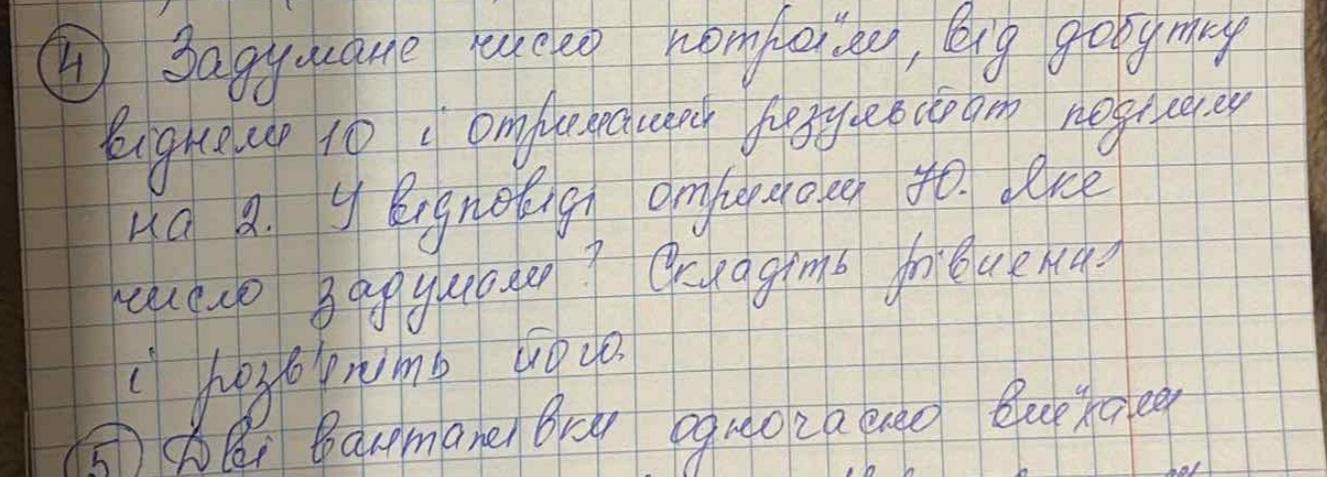 ④ Задумане число потроїли, від добутку
відняли 10 і отриманий результат поділили
на 2. У відповіді отримали 70. Яке
число задумали? Складіть рівняння
і розв'яжіть його.
⑤ Дві вантажівки одночасно виїхали